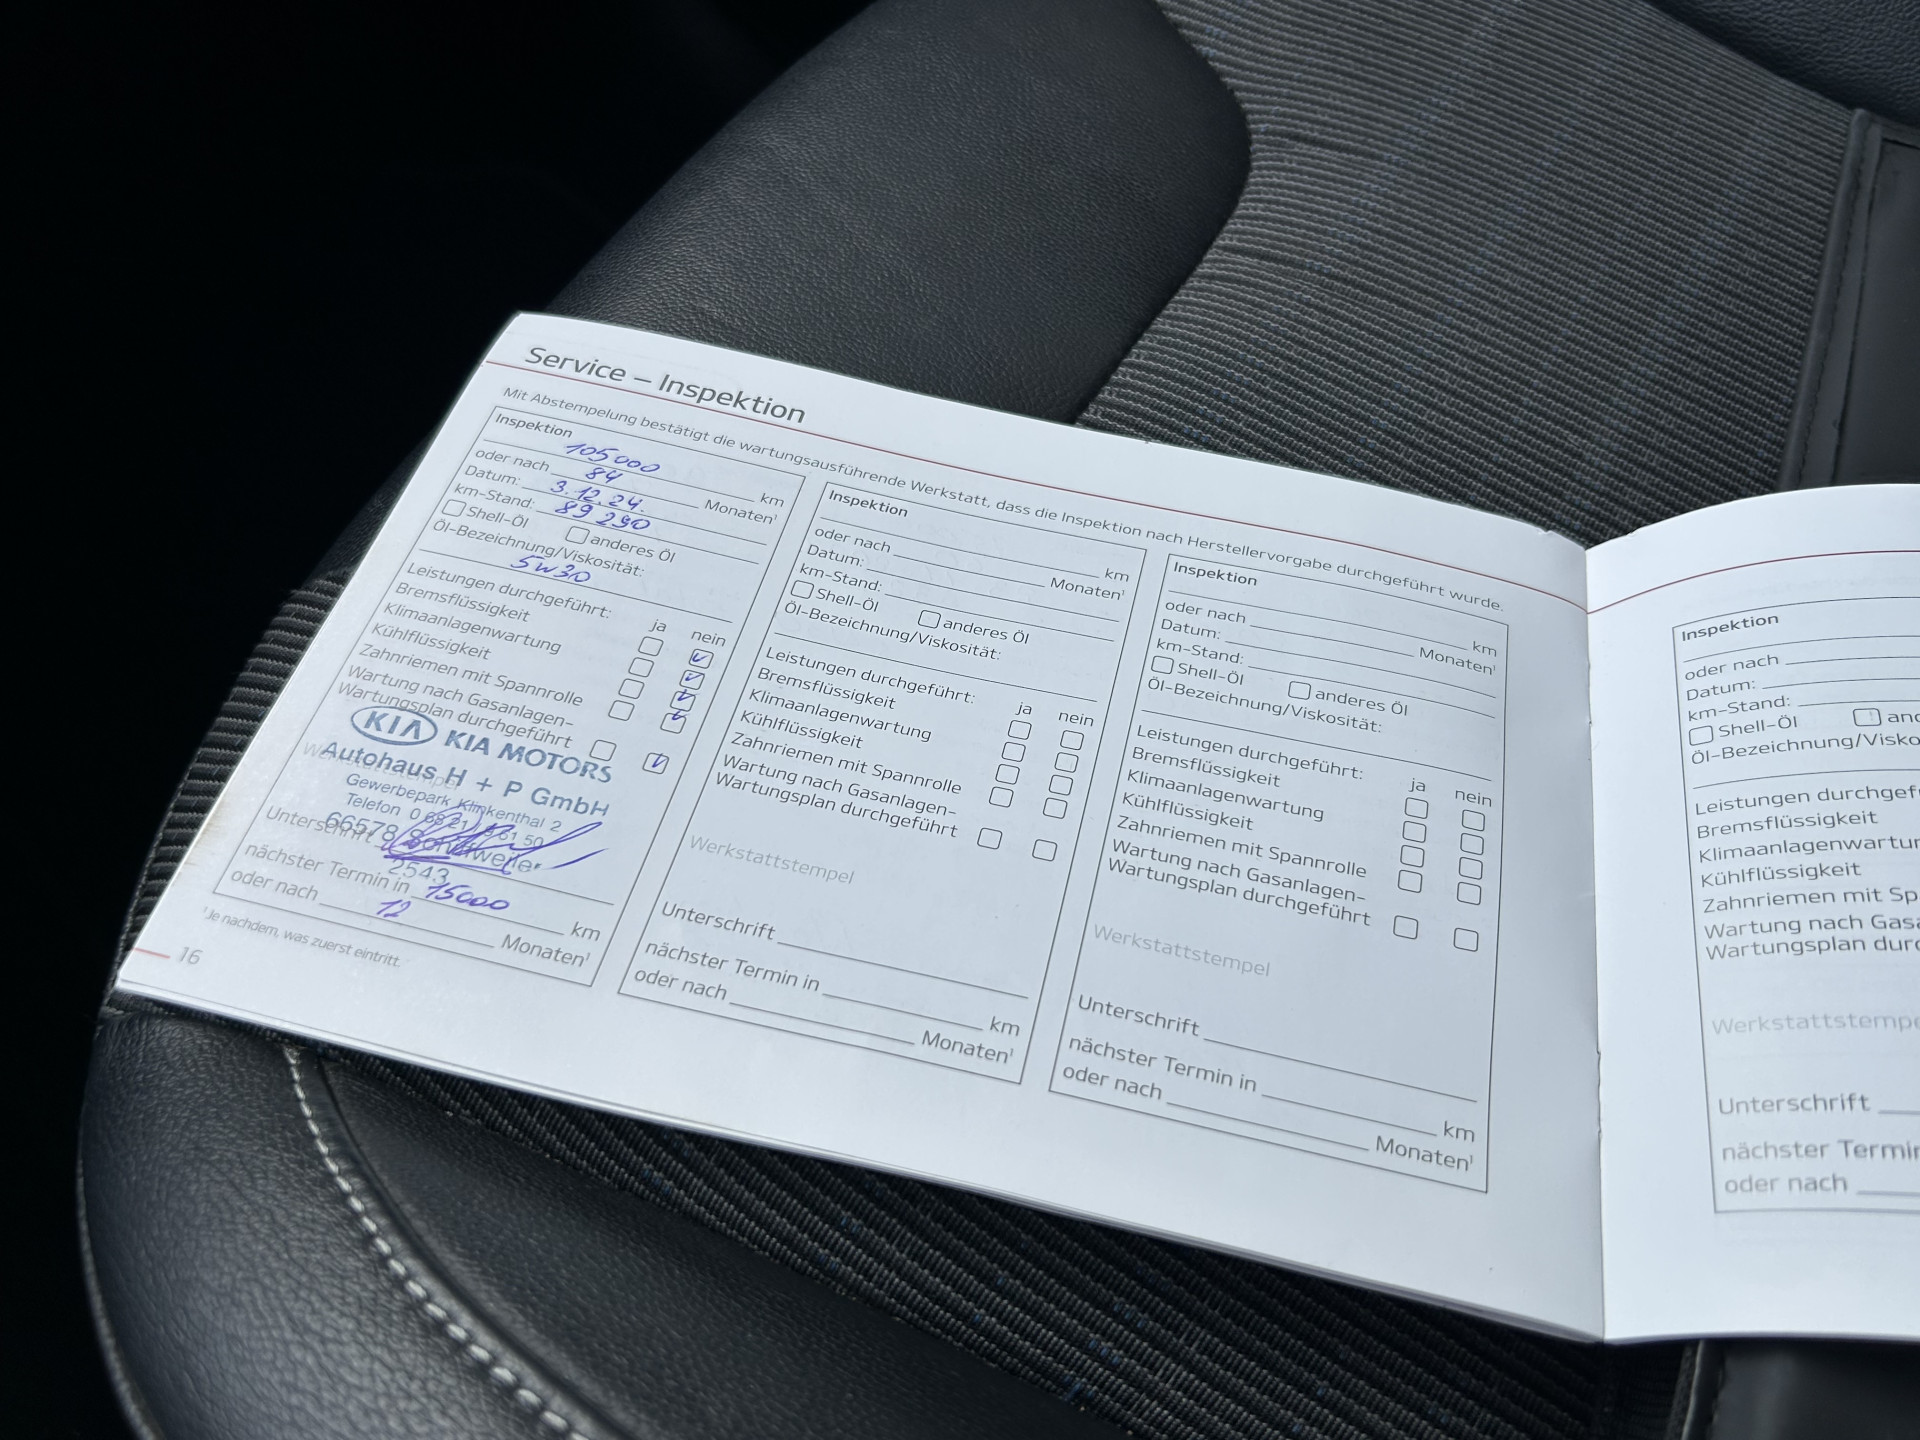 Service – Inspektion
Mit Abstempelung bestätigt die wartungsausführende Werkstatt, dass die Inspektion nach Herstellervorgabe durchgeführt wurde.
Inspektion
105000 km
oder nach 84 Monaten¹
Datum: 3.12.24.
km-Stand: 89 290
Shell-Öl anderes Öl
Öl-Bezeichnung/Viskosität:
5w30
Leistungen durchgeführt: ja nein
Bremsflüssigkeit
Klimaanlagenwartung
Kühlflüssigkeit
Zahnriemen mit Spannrolle
Wartung nach Gasanlagen-
Wartungsplan durchgeführt
KIA KIA MOTORS
Autohaus H + P GmbH
Gewerbepark Klinkenthal 2
Telefon
66578
2543
Unterschrift
nächster Termin in 15000 km
oder nach 12 Monaten¹
¹Je nachdem, was zuerst eintritt.
16
Inspektion
km
oder nach Monaten¹
Datum:
km-Stand:
Shell-Öl anderes Öl
Öl-Bezeichnung/Viskosität:
Leistungen durchgeführt: ja nein
Bremsflüssigkeit
Klimaanlagenwartung
Kühlflüssigkeit
Zahnriemen mit Spannrolle
Wartung nach Gasanlagen-
Wartungsplan durchgeführt
Werkstattstempel
Unterschrift
nächster Termin in km
oder nach Monaten¹
Inspektion
km
oder nach Monaten¹
Datum:
km-Stand:
Shell-Öl anderes Öl
Öl-Bezeichnung/Viskosität:
Leistungen durchgeführt: ja nein
Bremsflüssigkeit
Klimaanlagenwartung
Kühlflüssigkeit
Zahnriemen mit Spannrolle
Wartung nach Gasanlagen-
Wartungsplan durchgeführt
Werkstattstempel
Unterschrift
nächster Termin in km
oder nach Monaten¹
Inspektion
oder nach
Datum:
km-Stand:
Shell-Öl and
Öl-Bezeichnung/Visko
Leistungen durchgef
Bremsflüssigkeit
Klimaanlagenwartur
Kühlflüssigkeit
Zahnriemen mit Sp
Wartung nach Gasa
Wartungsplan durc
Werkstattstempe
Unterschrift
nächster Termin
oder nach